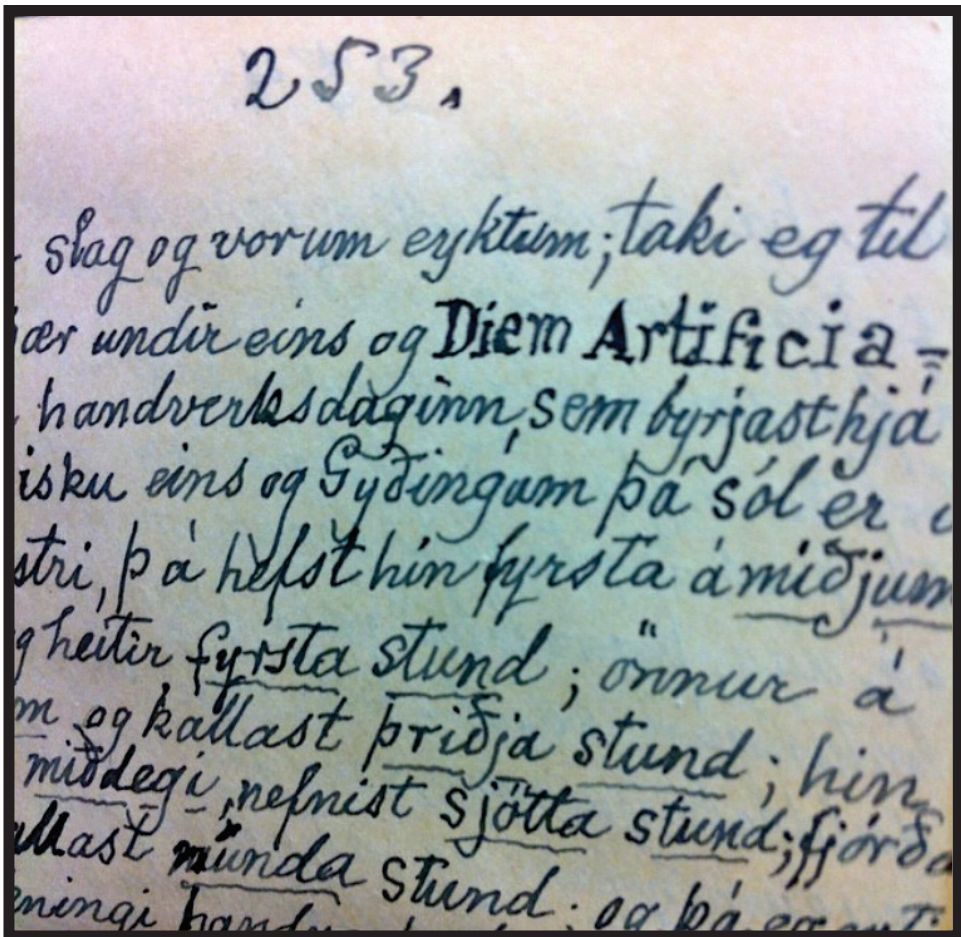 253.
slag og vorum eyktum; taki eg til
ær undir eins og Diem Artificia=
handverksdaginn, sem byrjast hjá
isku eins og Gyðingum þá sól er
stri, þá hefst hin fyrsta á miðjum
g heitir fyrsta stund; önnur á
m og kallast þriðja stund; hin
miðdegi, nefnist sjötta stund; fjórða
allast níunda stund; og þá er
eningi